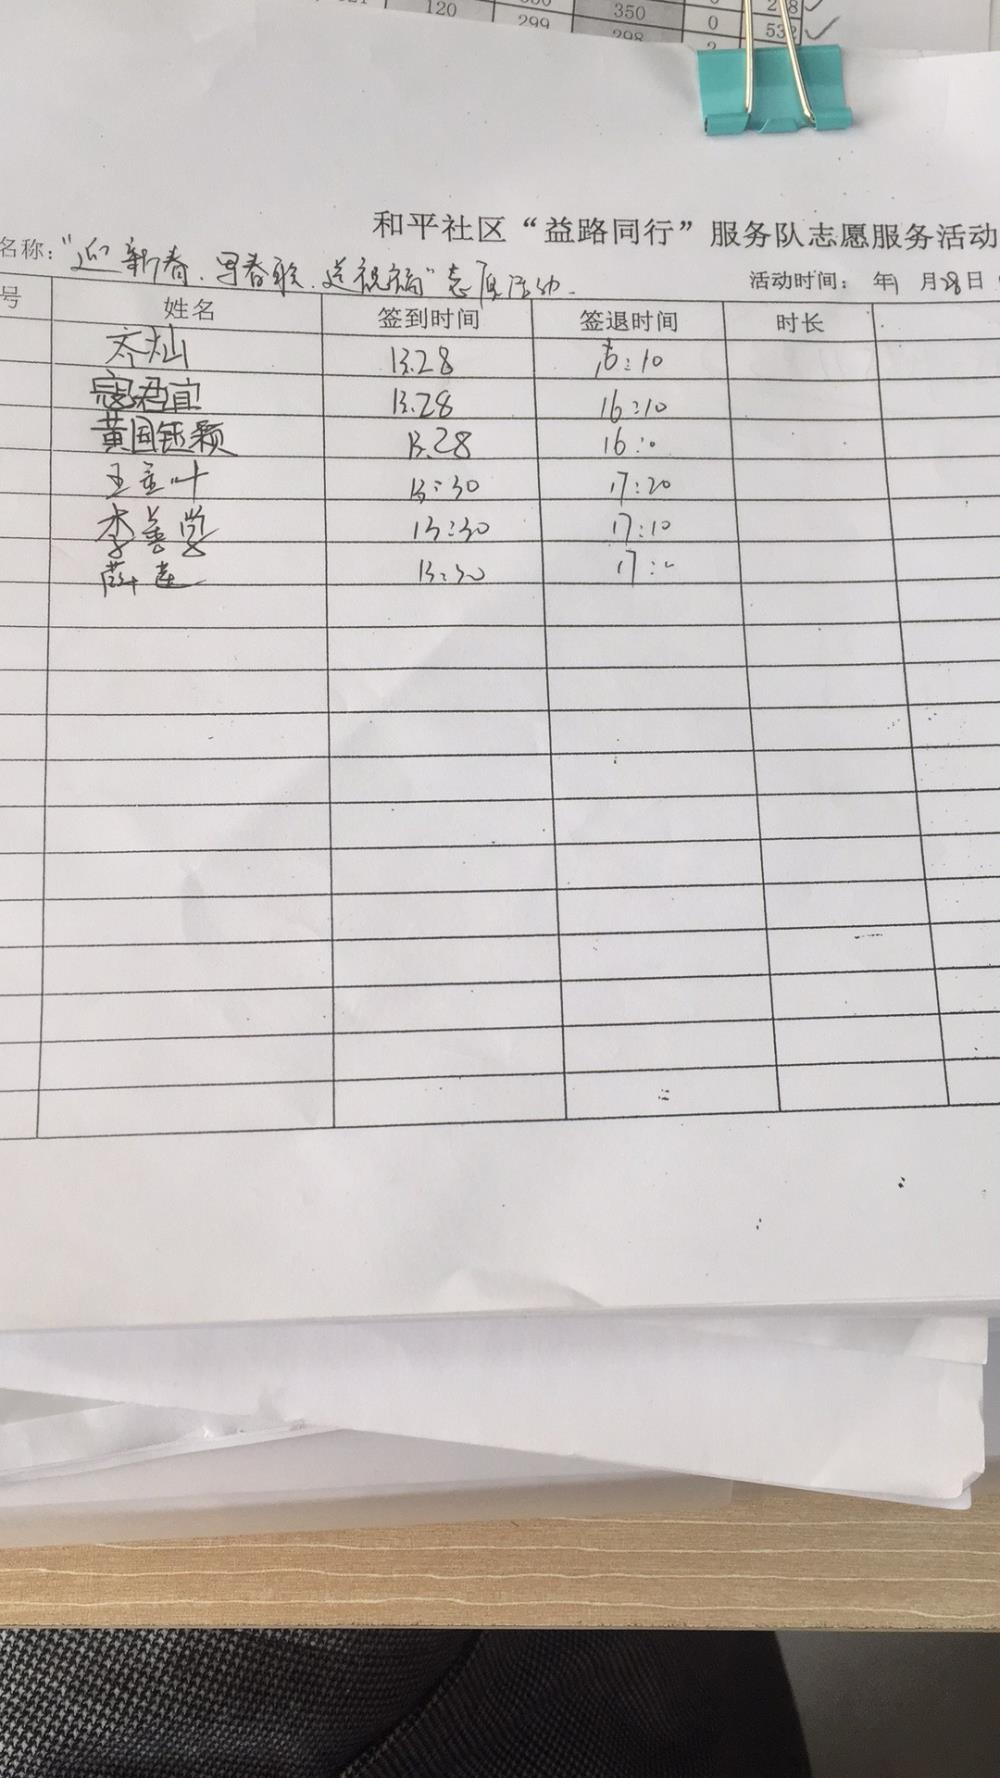 120 350 0
299 298 2 532
和平社区“益路同行”服务队志愿服务活动
名称：“迎新春、写春联、送祝福”志愿活动．
活动时间： 年1 月28日
号 姓名 签到时间 签退时间 时长
齐灿 13.28 16:10
寇君宜 13.28 16:10
黄国钰颖 13.28
王金叶 13:30 17:20
李善学 13:30 17:10
薛莲 13:30